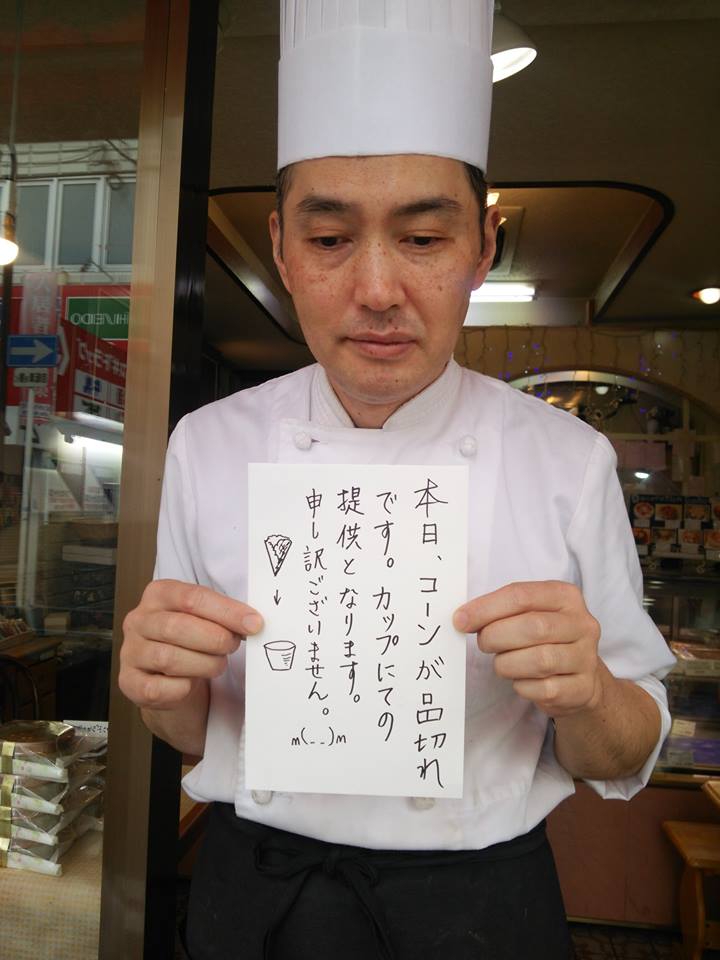 本日、コーンが品切れ
です。カップにての
提供となります。
申し訳ございません。
m(_ _)m